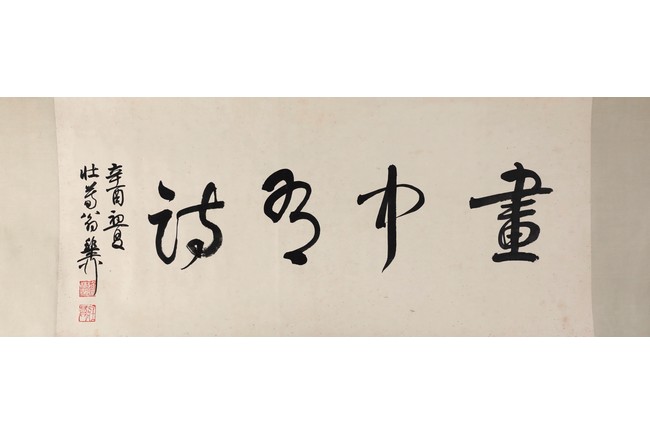 畫中有詩
辛酉初夏
壮暮翁稚